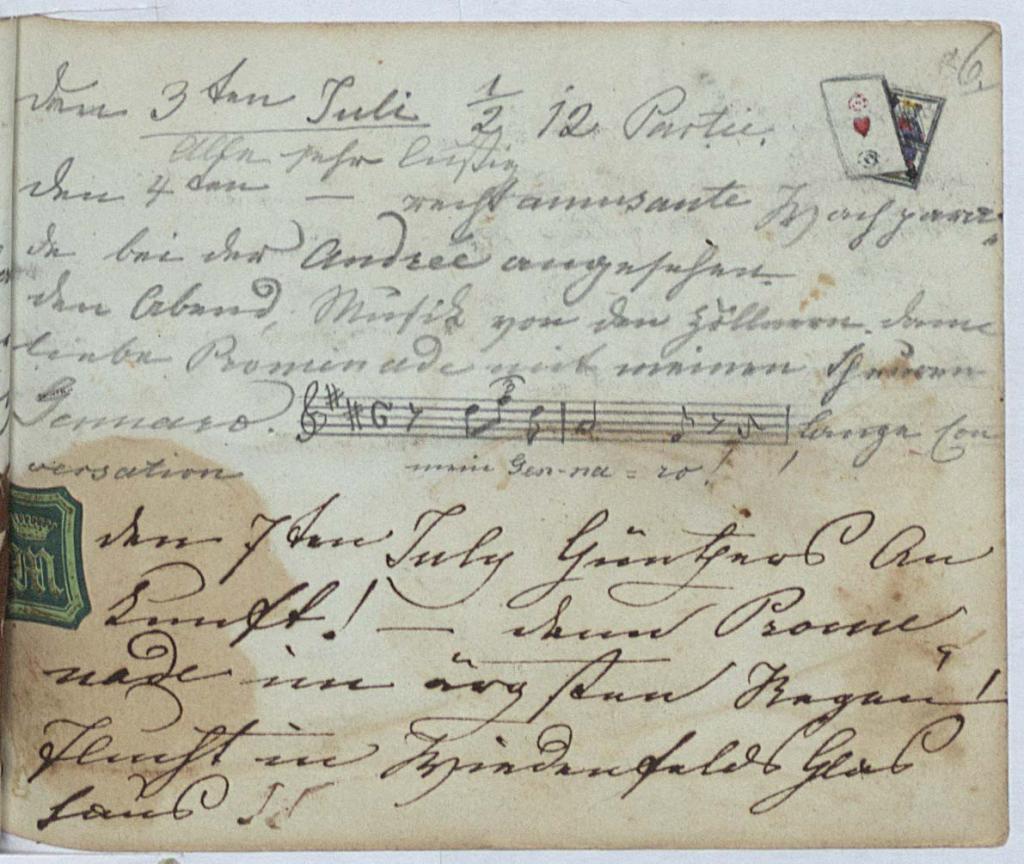 6.
den 3ten Juli 1/2 12 Partie.
Alle sehr lustig
den 4ten — recht amusante Wachpara
de bei der Andreé angesehen
den Abend, Musik von den Zöllnern, dann
liebe Promenade mit meinen theuren
Gennaro. Lange Con
versation mein Gen-na=ro!
den 7ten July Günthers An
kunft! — dann Prome
nade im ärgsten Regen!
Flucht in Wiedenfelds Glas
haus!!